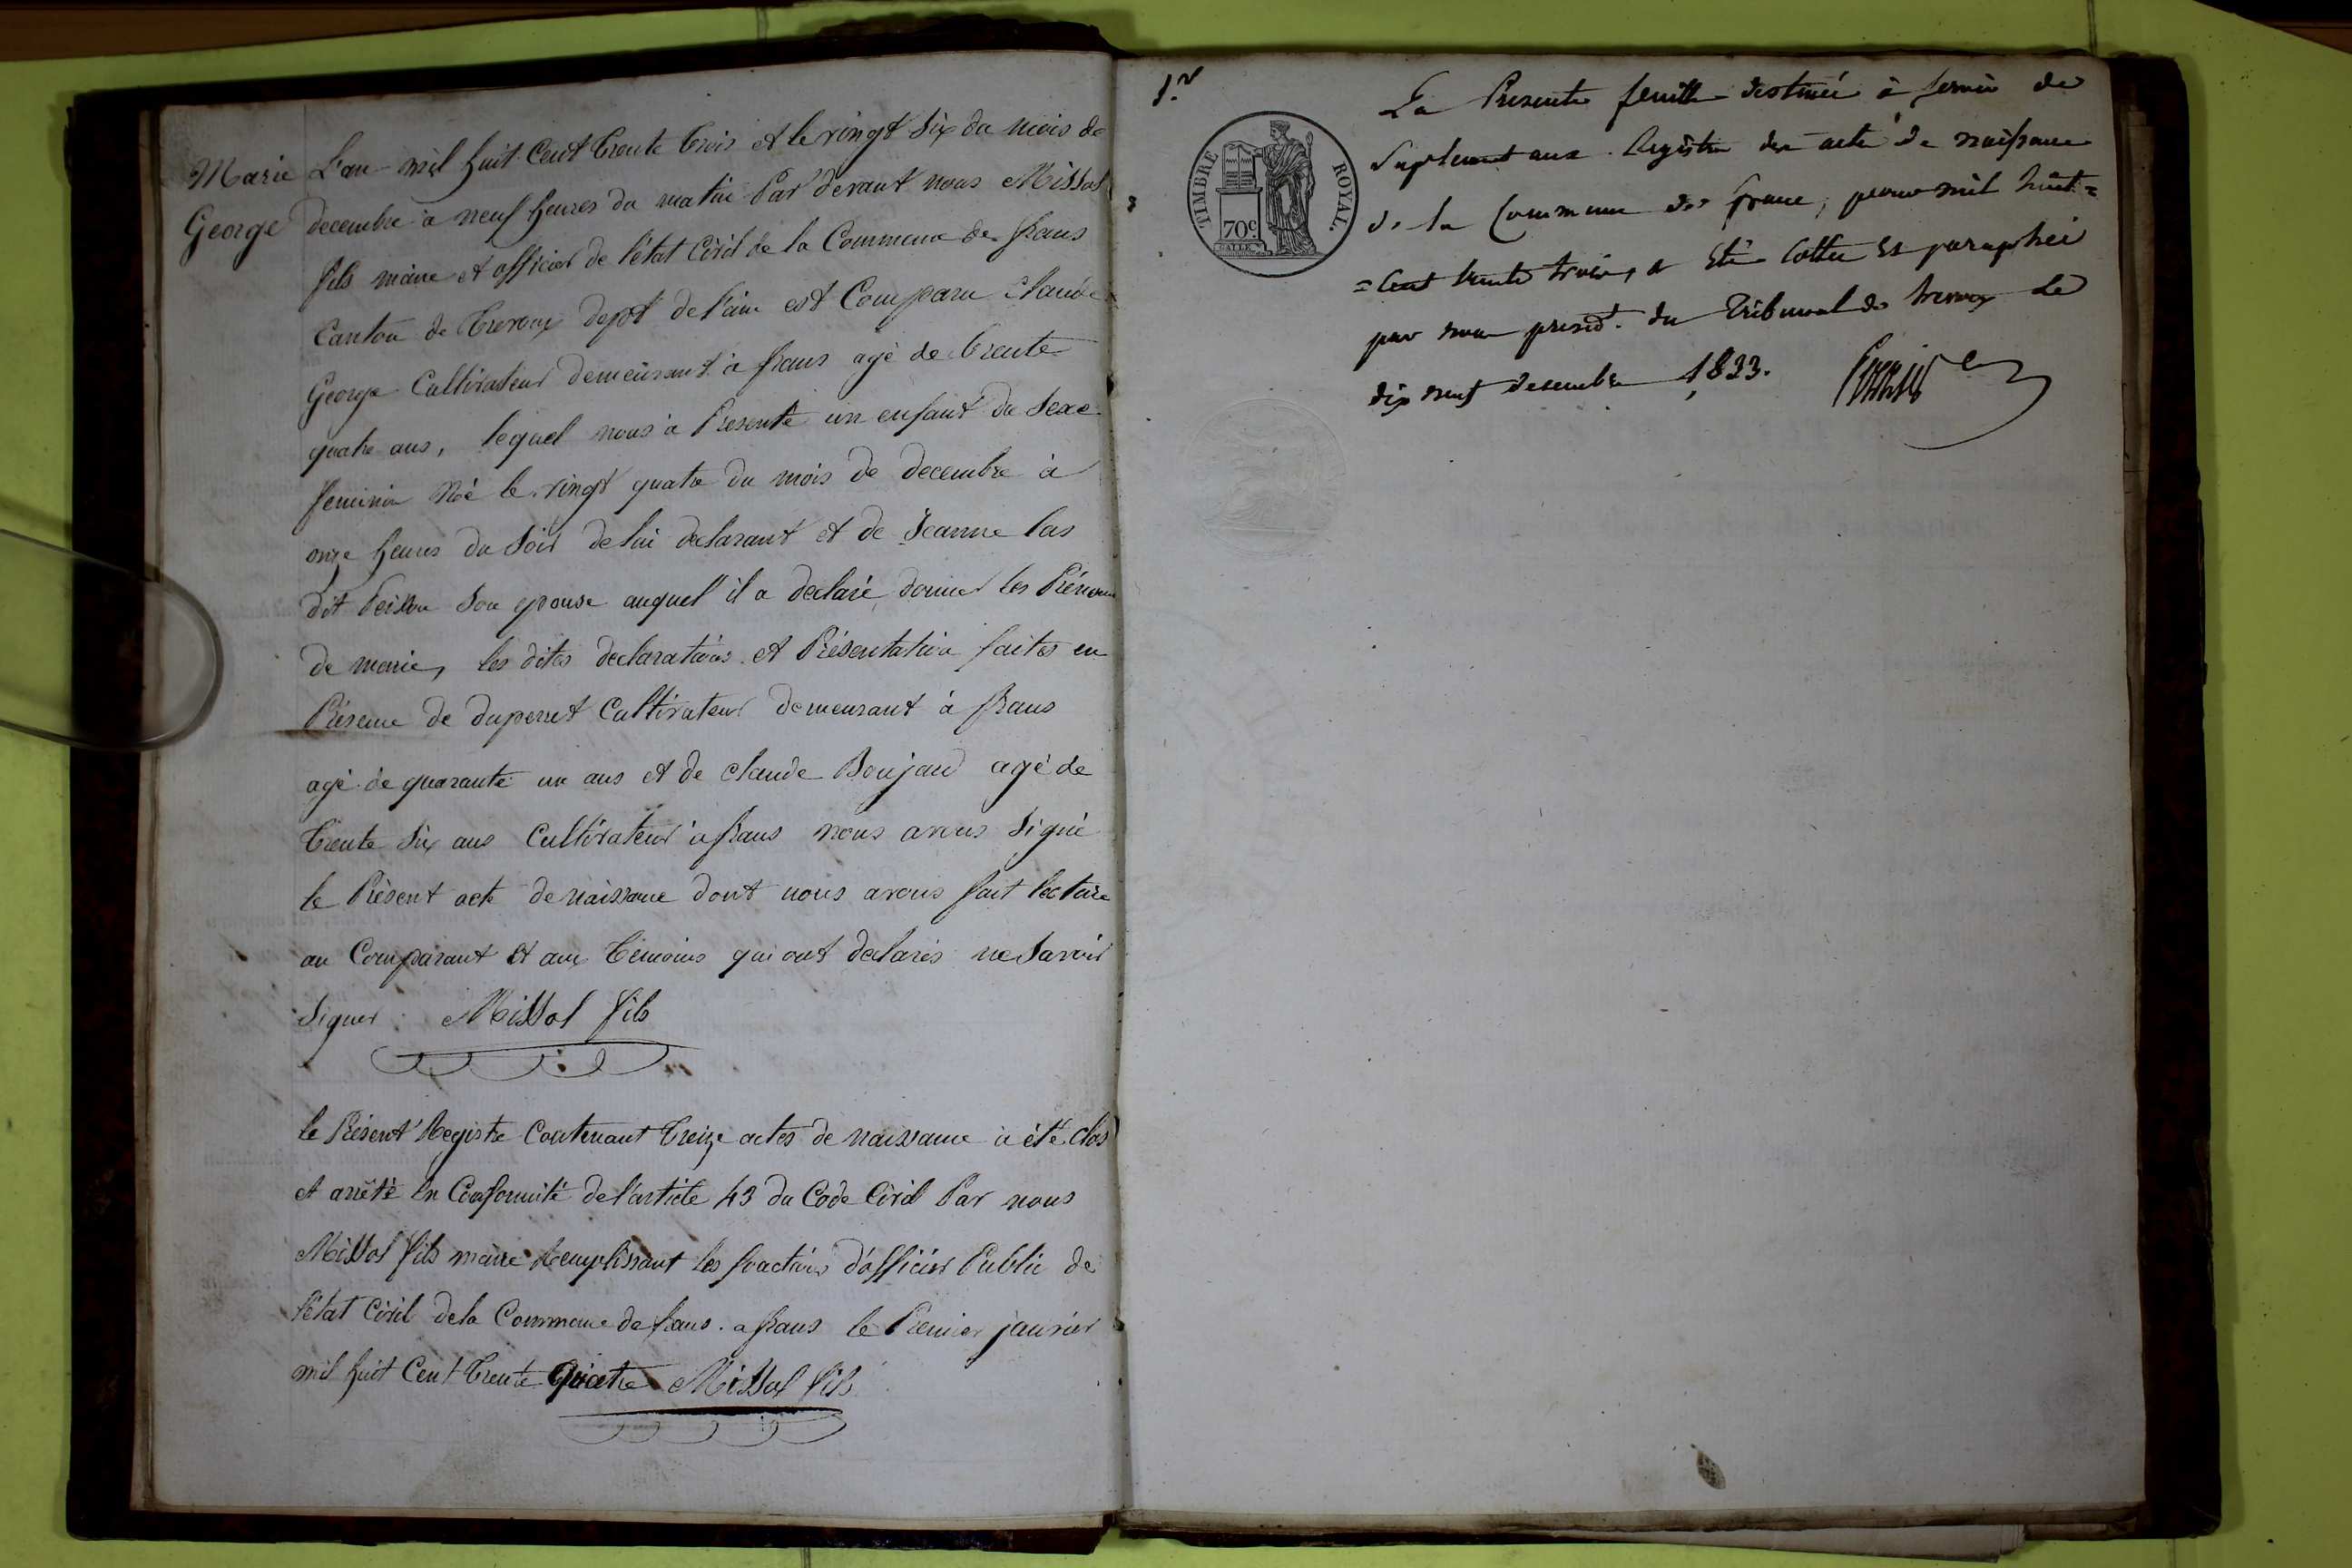 Marie
George
L'an mil huit Cent trente trois et le vingt Six du mois de
decembre à neuf heures du matin Par devant nous Missol
fils maire et officier de l'état Civil de la Commune de frans
Canton de Trevoux dept de l'ain est Comparu Claude
George Cultivateur demeurant à frans agé de trente
quatre ans, lequel nous à Presenté un enfant du Sexe
feminin Né le vingt quatre du mois de decembre à
onze heures du Soir de lui declarant et de Jeanne las
dit Son epouse auquel il a declaré donner les Prénoms
de marie, les dites declarations et Présentation faites en
Présence de duperret Cultivateur demeurant à frans
agé de quarante un ans et de claude Boujard agé de
trente Six ans Cultivateur à frans nous avons Signé
le Présent acte de naissance dont nous avons fait lecture
au Comparant et aux témoins qui ont declarés ne Savoir
Signer Missol fils
le Présent Registre Contenant treize actes de naissance a été clos
et arrêté en Conformité de l'article 43 du Code Civil Par nous
Missol fils maire Remplissant les fonctions d'officier Public de
l'état Civil de la Commune de frans. a frans le Premier janvier
mil huit Cent trente quatre Missol fils
1.er
TIMBRE ROYAL.
70c.
La Presente feuille destinée à servir de
Suplement aux Registre des acte de naissance
de la Commune de frans, pour mil huit=
=Cent trente trois, a Eté Cottée Et paraphée
par nous presidt. du Tribunal de trevoux Le
dix neuf decembre 1833.